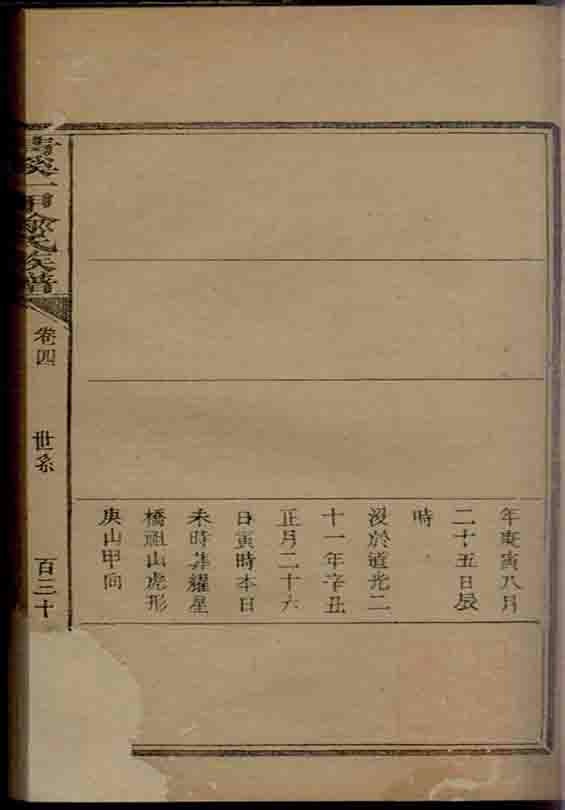 年庚寅八月
二十五日辰
時
沒於道光二
十一年辛丑
正月二十六
日寅時本日
未時葬耀星
橋祖山虎形
庚山甲向
一甲俞氏族譜
卷四
世系
百三十